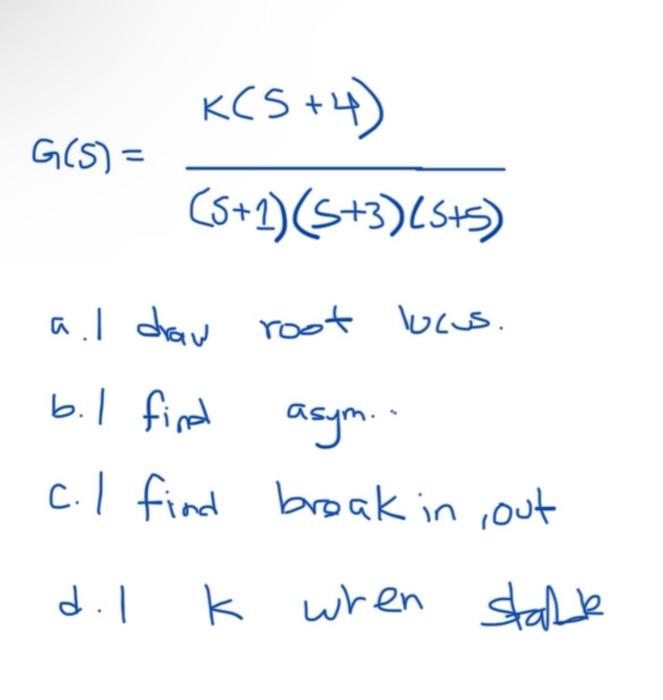 K(S+4)
G(S) =
(S+1)(S+3)(S+5)
a.| draw root locus.
b.| find asym..
c.| find break in, out
d.| k when stable